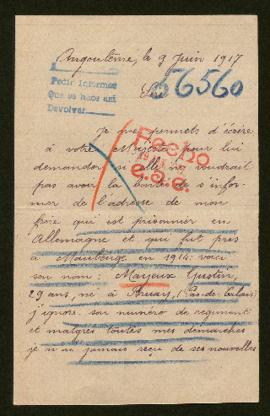 Angoulême, le 9 Juin 1917
56560
Pedir informes
Que se haga así
Devolver
je me permets d'écrire
à votre Majesté pour lui
demander si elle ne voudrait
pas avoir la bonté de s'infor-
mer de l'adresse de mon
frère qui est prisonnier en
Allemagne et qui fut pris
à Maubeuge en 1914: voici
son nom: Marjeux Gustin,
29 ans, né à (Pas-de-Calais)
j'ignore son numéro de régiment
et malgré toutes mes démarches
je n'ai jamais reçu de ses nouvelles